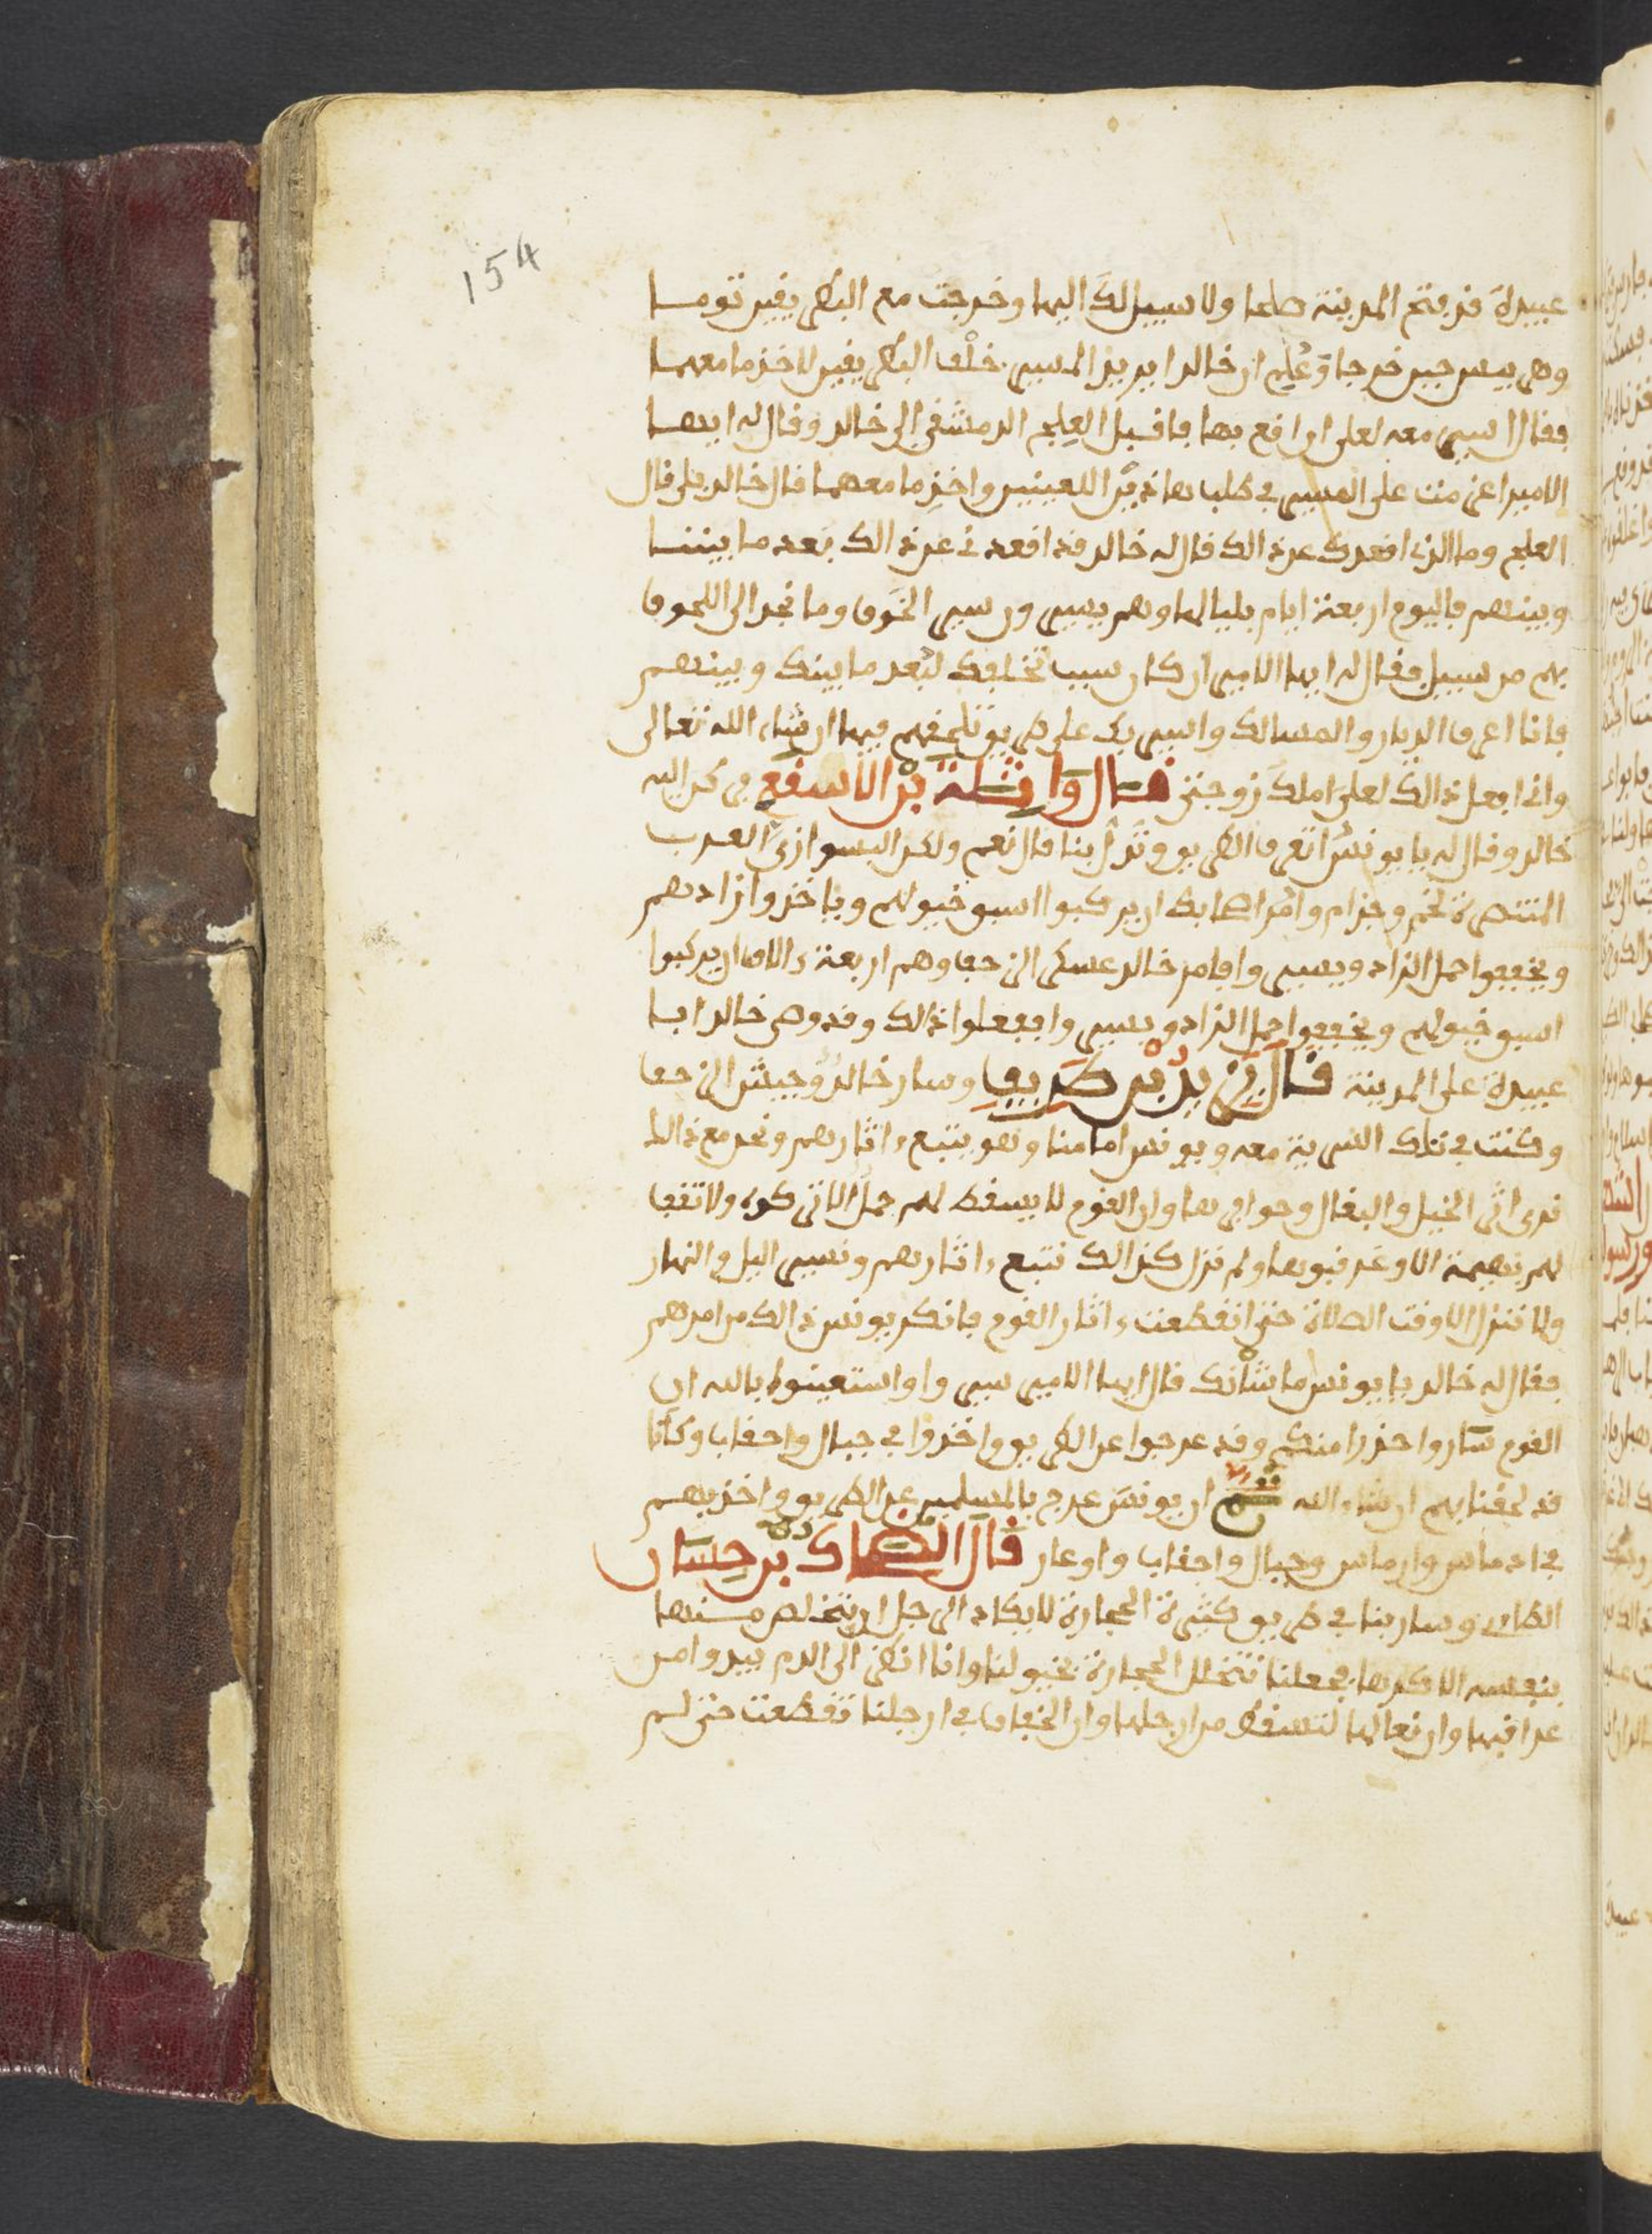 154
عبيدة قد فتح المدينة صلحا ولا سبيل لك اليها وخرجت مع البطريقين توما
وهربيس حين خرجا وعلم ان خالدا يريد المسير خلف البطريقين لاخذ ما معهما
فقال اسير معه لعلي ان اقع بها فاقبل العلج الدمشقي الى خالد وقال له ايها
الامير اعزمت على المسير في طلب هاذين اللعينين واخذ ما معهما قال خالد بلى قال
العلج وما الذي اقعدك عن ذالك قال له خالد قد اقعدني عن ذالك بعد ما بيننا
وبينهم فاليوم اربعة ايام بلياليها وهم يسيرون سير الخوف وما نجد الى اللحوق
بهم من سبيل فقال له ايها الامير ان كان سبب تخلفك لبعد ما بينك وبينهم
فانا اعرف الديار والمسالك واسير بك على طريق تلحقهم فيها ان شاء الله تعالى
وانا افعل ذالك لعلي املك زوجتي قال واثلة بن الاسقع فركن اليه
خالد وقال له يا يونس اتعرف الطريق وتدل بنا قال نعم ولكن البسوا زي العرب
المتنصرة لخم وجذام وامر اصحابك ان يركبوا اسبق خيولهم وياخذوا زادهم
ويخففوا حمل الزاد ويسير وا فامر خالد عسكر الزحف وهم اربعة ءالاف ان يركبوا
اسبق خيولهم ويخففوا حمل الزاد ويسير وا ففعلوا ذالك وقد وصى خالد ابا
عبيدة على المدينة قال زيد بن طريف وسار خالد وجيش الزحف
وكنت في تلك السرية معه ويونس امامنا وهو يتبع ءاثارهم ونحن مع ذالك
نرى اثر الخيل والبغال وحوافرها وان القوم لا يسقط لهم جمل الا تركوه ولا تقف
لهم بهيمة الا وعرقبوها ولم نزل كذالك نتبع ءاثارهم ونسير اليل والنهار
ولا ننزل الا وقت الصلاة حتى انقطعت ءاثار القوم فانكر يونس ذالك من امرهم
فقال له خالد يا يونس ما شانك قال ايها الامير سير وا واستعينوا بالله ان
القوم ساروا حذرا منكم وقد عرجوا عن الطريق واخذوا في جبال واحقاب وكانا
قد لحقنا بهم ان شاء الله ثم ان يونس عرج بالمسلمين عن الطريق واخذ بهم
في ادماس وارماس وجبال واحقاب واوعار قال الضحاك بن حسان
الطاءي وسار بنا في طريق كثيرة الحجارة لا يكاد الرجل ان يتخلص منها
بنفسه الا كرها فجعلنا نتخلل الحجارة بخيولنا وانا انظر الى الدم يبدوا من
عراقبها وان نعالها لتسقط من ارجلها وان الخفاف في ارجلنا تقطعت حتى لم